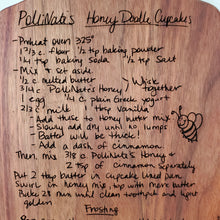 PolliNate's Honey Doodle Cupcakes
- Preheat oven 375°
- 1 2/3 c. flour 1/2 tsp baking powder
1/4 tsp baking soda 1/2 tsp salt
- Mix & set aside
- 1/2 c. melted butter
3/4 c PolliNate's Honey
1 egg 1/4 c. plain Greek yogurt
2/3 c milk 1 tsp Vanilla
Whisk together
- Add these to Honey butter mix
- Slowly add dry until no lumps
- Batter will be thick!
- Add a dash of cinnamon.
Then, mix c PolliNate's Honey &
2 Tsp of cinnamon separately
Put 2 tbsp batter in cupcake lined pan
Swirl in honey mix, top with more batter
Bake min until clean toothpick and light
golden
Frosting